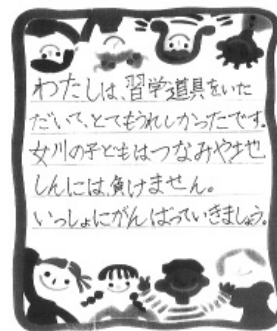 わたしは、習学道具をいた
だいて、とてもうれしかったです。
女川の子どもはつなみや地
しんには、負けません。
いっしょにがんばっていきましょう。